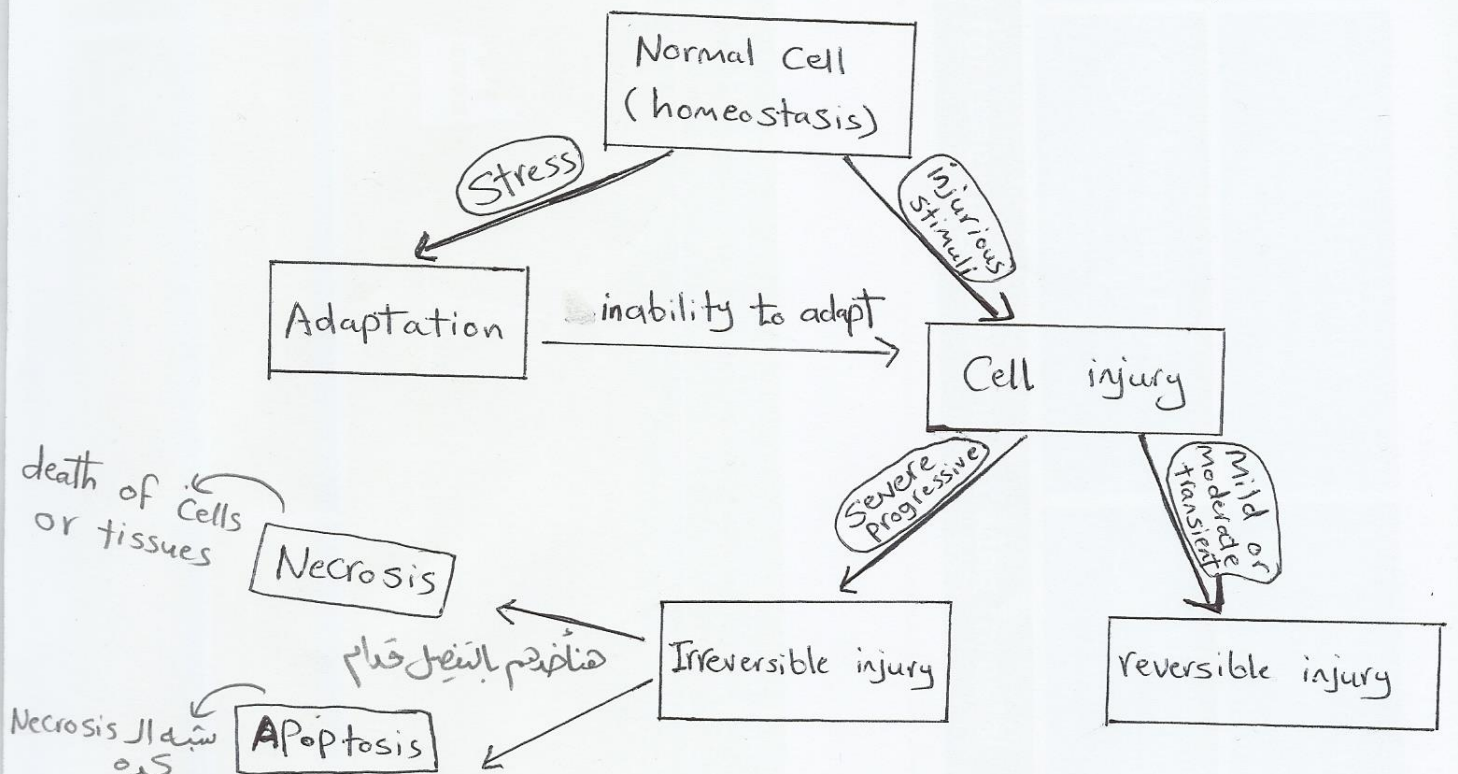 Normal Cell
(homeostasis)
Stress
injurious
stimuli
Adaptation
inability to adapt
Cell injury
Severe
progressive
Mild or
Moderate
transient
death of Cells
or tissues
Necrosis
هنأخدهم بالتفصيل قدام
Irreversible injury
reversible injury
Apoptosis
شبه ال Necrosis
كده